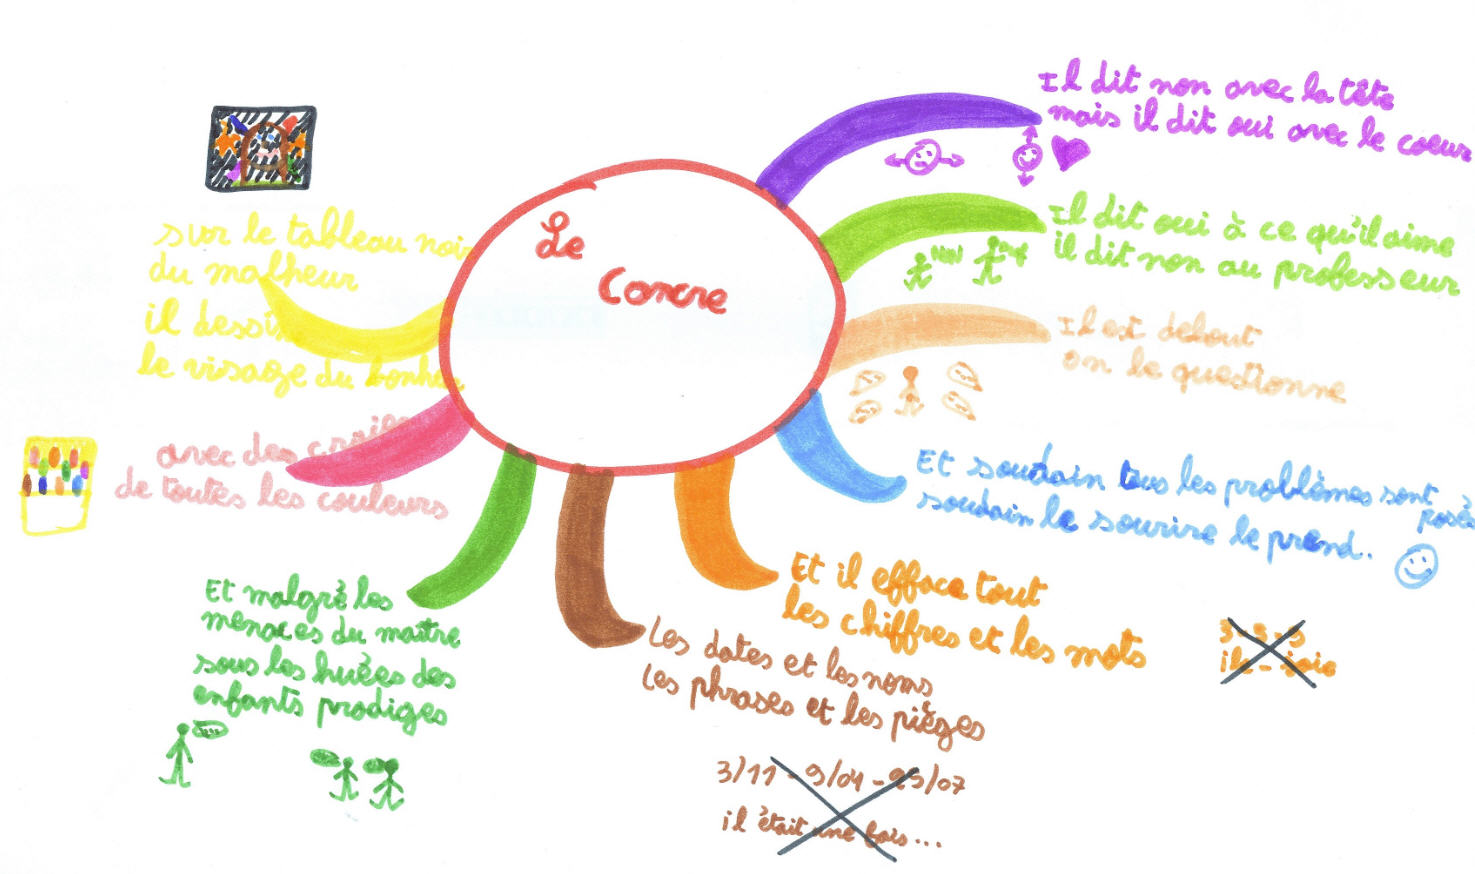 Le
Cancre
Il dit non avec la tête
mais il dit oui avec le coeur
Il dit oui à ce qu'il aime
il dit non au professeur
NON
Il est debout
on le questionne
Et soudain tous les problèmes sont posés
soudain le sourire le prend.
Et il efface tout
les chiffres et les mots
Les dates et les noms
les phrases et les pièges
3/11 - 9/04 - 25/07
il était une fois...
Et malgré les
menaces du maître
sous les huées des
enfants prodiges
avec des
de toutes les couleurs
sur le tableau noir
du malheur
il
le visage du